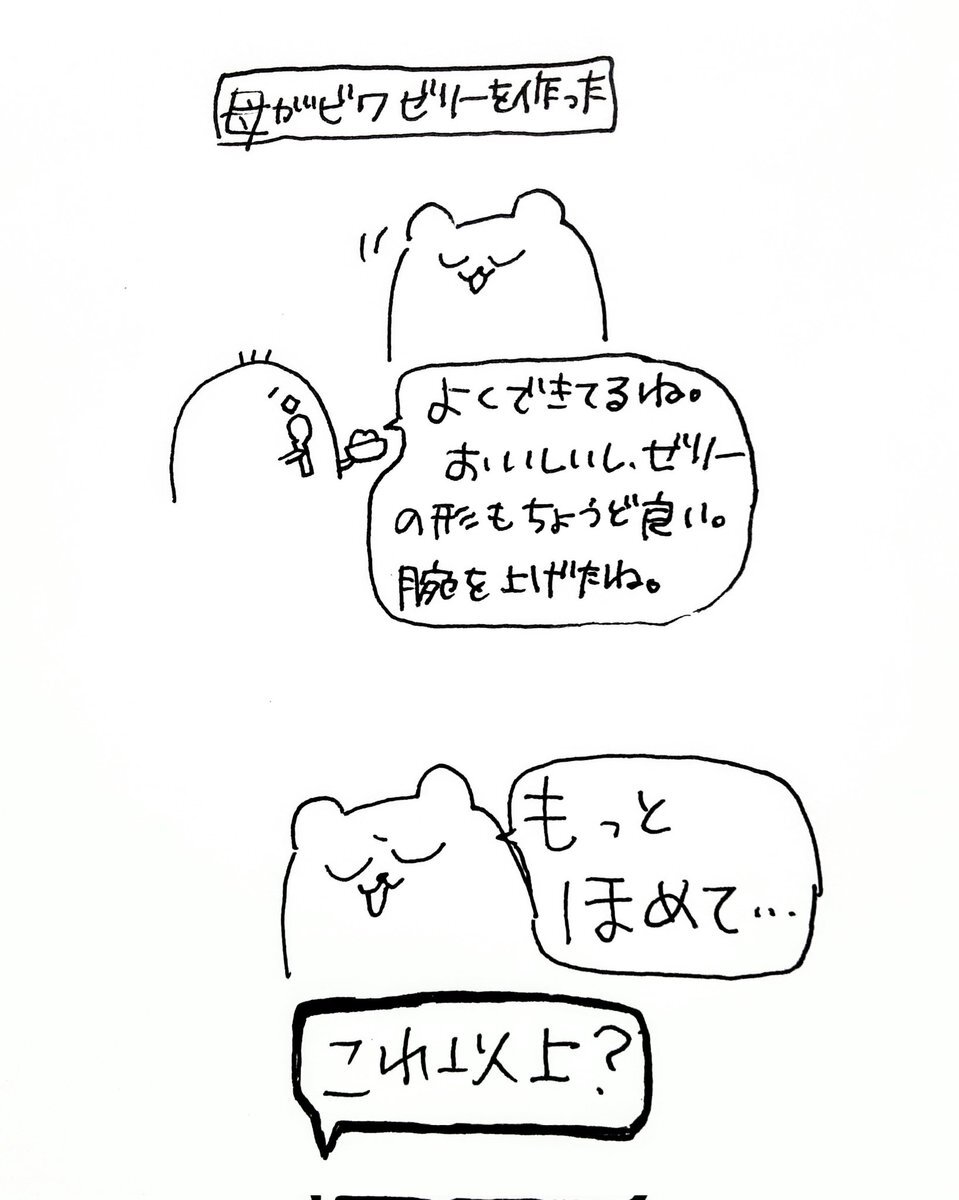 母がビワゼリーを作った
よくできてるね。
おいいしいし、ゼリー
の形もちょうど良い。
腕を上げたね。
もっと
ほめて…
これ以上?